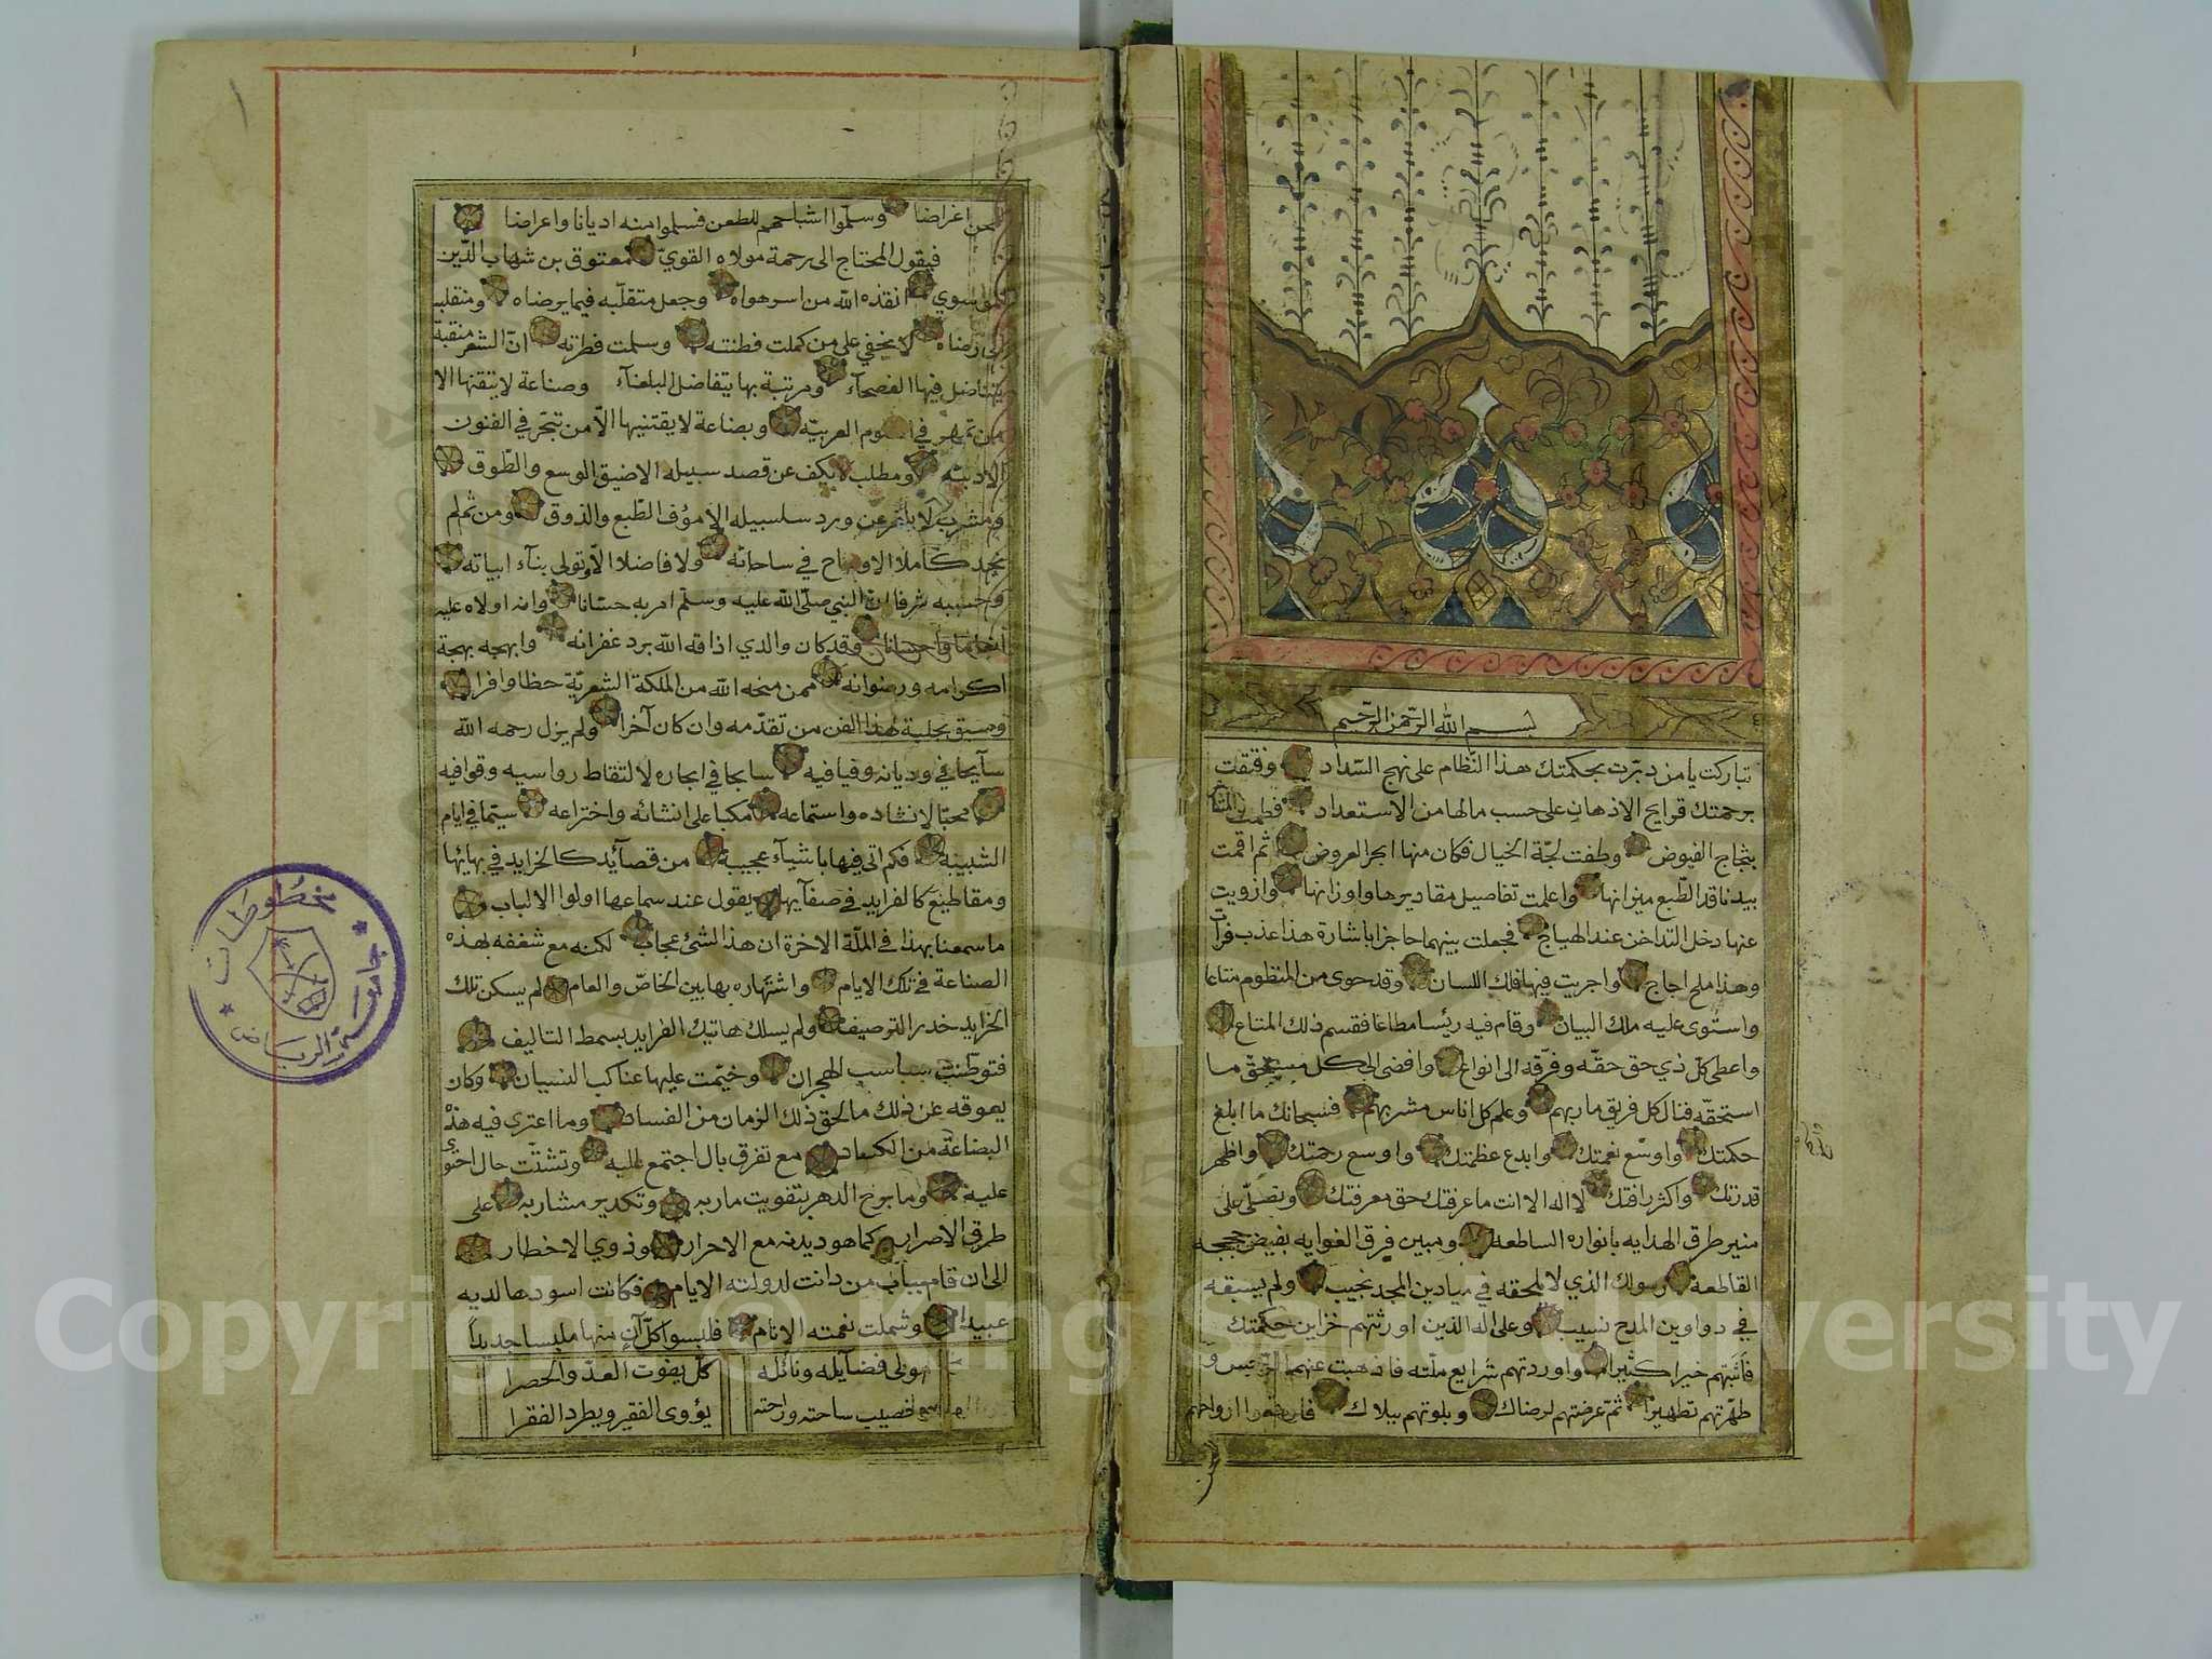 بسم الله الرحمن الرحيم
تباركت يا من دبّرت بحكمتك هذا النّظام على نهج السّداد وفتقت
برحمتك قرايح الاذهان على حسب مالها من الاستعداد فطمت
بثجاج الفيوض وطفت لجّة الخيال فكان منها ابحر العروض ثم اقمت
بيد ناقد الطّبع ميزانها واعلمت تفاصيل مقاديرها واوزانها وازويت
عنها دخل التداخن عند الهياج فجعلت بينهما حاجزا باشارة هذا عذب فرات
وهذا ملح اجاج واجريت فيها فلك اللسان وقد حوى من المنظوم متاعا
واستوى عليه ملك البيان وقام فيه رئيسا مطاعا فقسم ذلك المتاع
واعطى كلّ ذي حق حقّه وفرّقه الى انواع وافضى الى كل مستحق ما
استحقّه فنال كل فريق ماربهم وعلم كل اناس مشربهم فسبحانك ما ابلغ
حكمتك واوسّع نعمتك وابدع عظمتك واوسع رحمتك واظهر
قدرتك واكثر رافتك لا اله الا انت ما عرفتك حق معرفتك ونصلّى على
منير طرق الهدايه بانواره الساطعة ومبين فرق الغوايه بفيض حججه
القاطعة رسولك الذي لا يلحقه في ميادين المجد نجيب ولم يسبقه
في دواوين المدح نسيب وعلى اله الذين اورثتهم خزاين حكمتك
فاثبتهم خيرا كثيرا واوردتهم شرايع ملّته فاذهبت عنهم الرجس و
طهّرتهم تطهيرا ثمّ عرضتهم لرضاك وبلوتهم ببلاك فارخصوا ارواحهم
عن اغراضا وسلّموا اشباحهم للطعن فسلموا منه اديانا واعراضا
فيقول المحتاج الى رحمة مولاه القويّ معتوق بن شهاب الدّين
الموسوي انقذه الله من اسر هواه وجعل متقلّبه فيما يرضاه ومنقلبه
الى رضاه لا يخفي على من كملت فطنته وسلمت فطرته انّ الشعر منقبة
يتناضل فيها الفصحآء ومرتبة بها يتفاضل البلغآء وصناعة لا يتقنها الا
من تمهر في العلوم العربيّه وبضاعة لا يقتنيها الاّ من تبحّر في الفنون
الادبيّه ومطلب لا يكف عن قصد سبيله الا ضيق الوسع والطّوق
ومشرب لا عن ورد سلسبيله الا مؤف الطّبع والذوق ومن ثم لم
يجد كاملا الا وساح في ساحاته ولا فاضلا الاّ وتولى بنآء ابياته
وحسبه شرفا انّ النبي صلّى الله عليه وسلّم امر به حسّانا وانه اولاه عليه
انعاما واحسانا وقد كان والدي اذاقه الله برد غفرانه وابهجه بهجة
اكرامه ورضوانه ممن منحه الله من الملكة الشعريّة حظا وافرا
وسبق بحلبة هذا الفن من تقدّمه وان كان آخرا ولم يزل رحمه الله
سآيحا في وديانه وفيافيه سابحا في ابحاره لالتقاط رواسيه وقوافيه
محبّا لانشاده واستماعه مكبا على انشائه واختراعه سيّما في ايام
الشبيبة فكم اتى فيها باشيآء عجيبة من قصآئد كالخرايد في بهائها
ومقاطيع كالفرايد في صفآئها يقول عند سماعها اولوا الالباب
ما سمعنا بهذا في الملّة الاخرة ان هذا لشئ عجاب لكنه مع شغفه بهذه
الصناعة في تلك الايام واشتهاره بها بين الخاصّ والعام لم يسكن تلك
الخرايد خدر الترصيف ولم يسلك هاتيك الفرايد بسمط التاليف
فتوطّنت سباسب الهجران وخيّمت عليها عناكب النسيان وكان
يعوقه عن ذلك ما لحق ذلك الزمان من الفساد وما اعترى فيه هذه
البضاعة من الكساد مع تفرق بال اجتمع لديه وتشتّت حال احتوى
عليه وما برح الدهر بتفويت ماربه وتكدير مشاربه على
طرق الاصرار كما هو ديدنه مع الاحرار وذوي الاخطار
الى ان قام بباب من دانت لدولته الايام فكانت اسودها لديه
عبيدا وشملت نعمته الانام فلبسوا كلّ آن منها ملبسا جديدا
مولى فضآيله ونائله كلّ يفوت العدّ والحصرا
خصيب ساحته وراحته يؤوى الفقير ويطرد الفقرا
مخطوطات
جامعة الرياض
Copyright © King Saud University